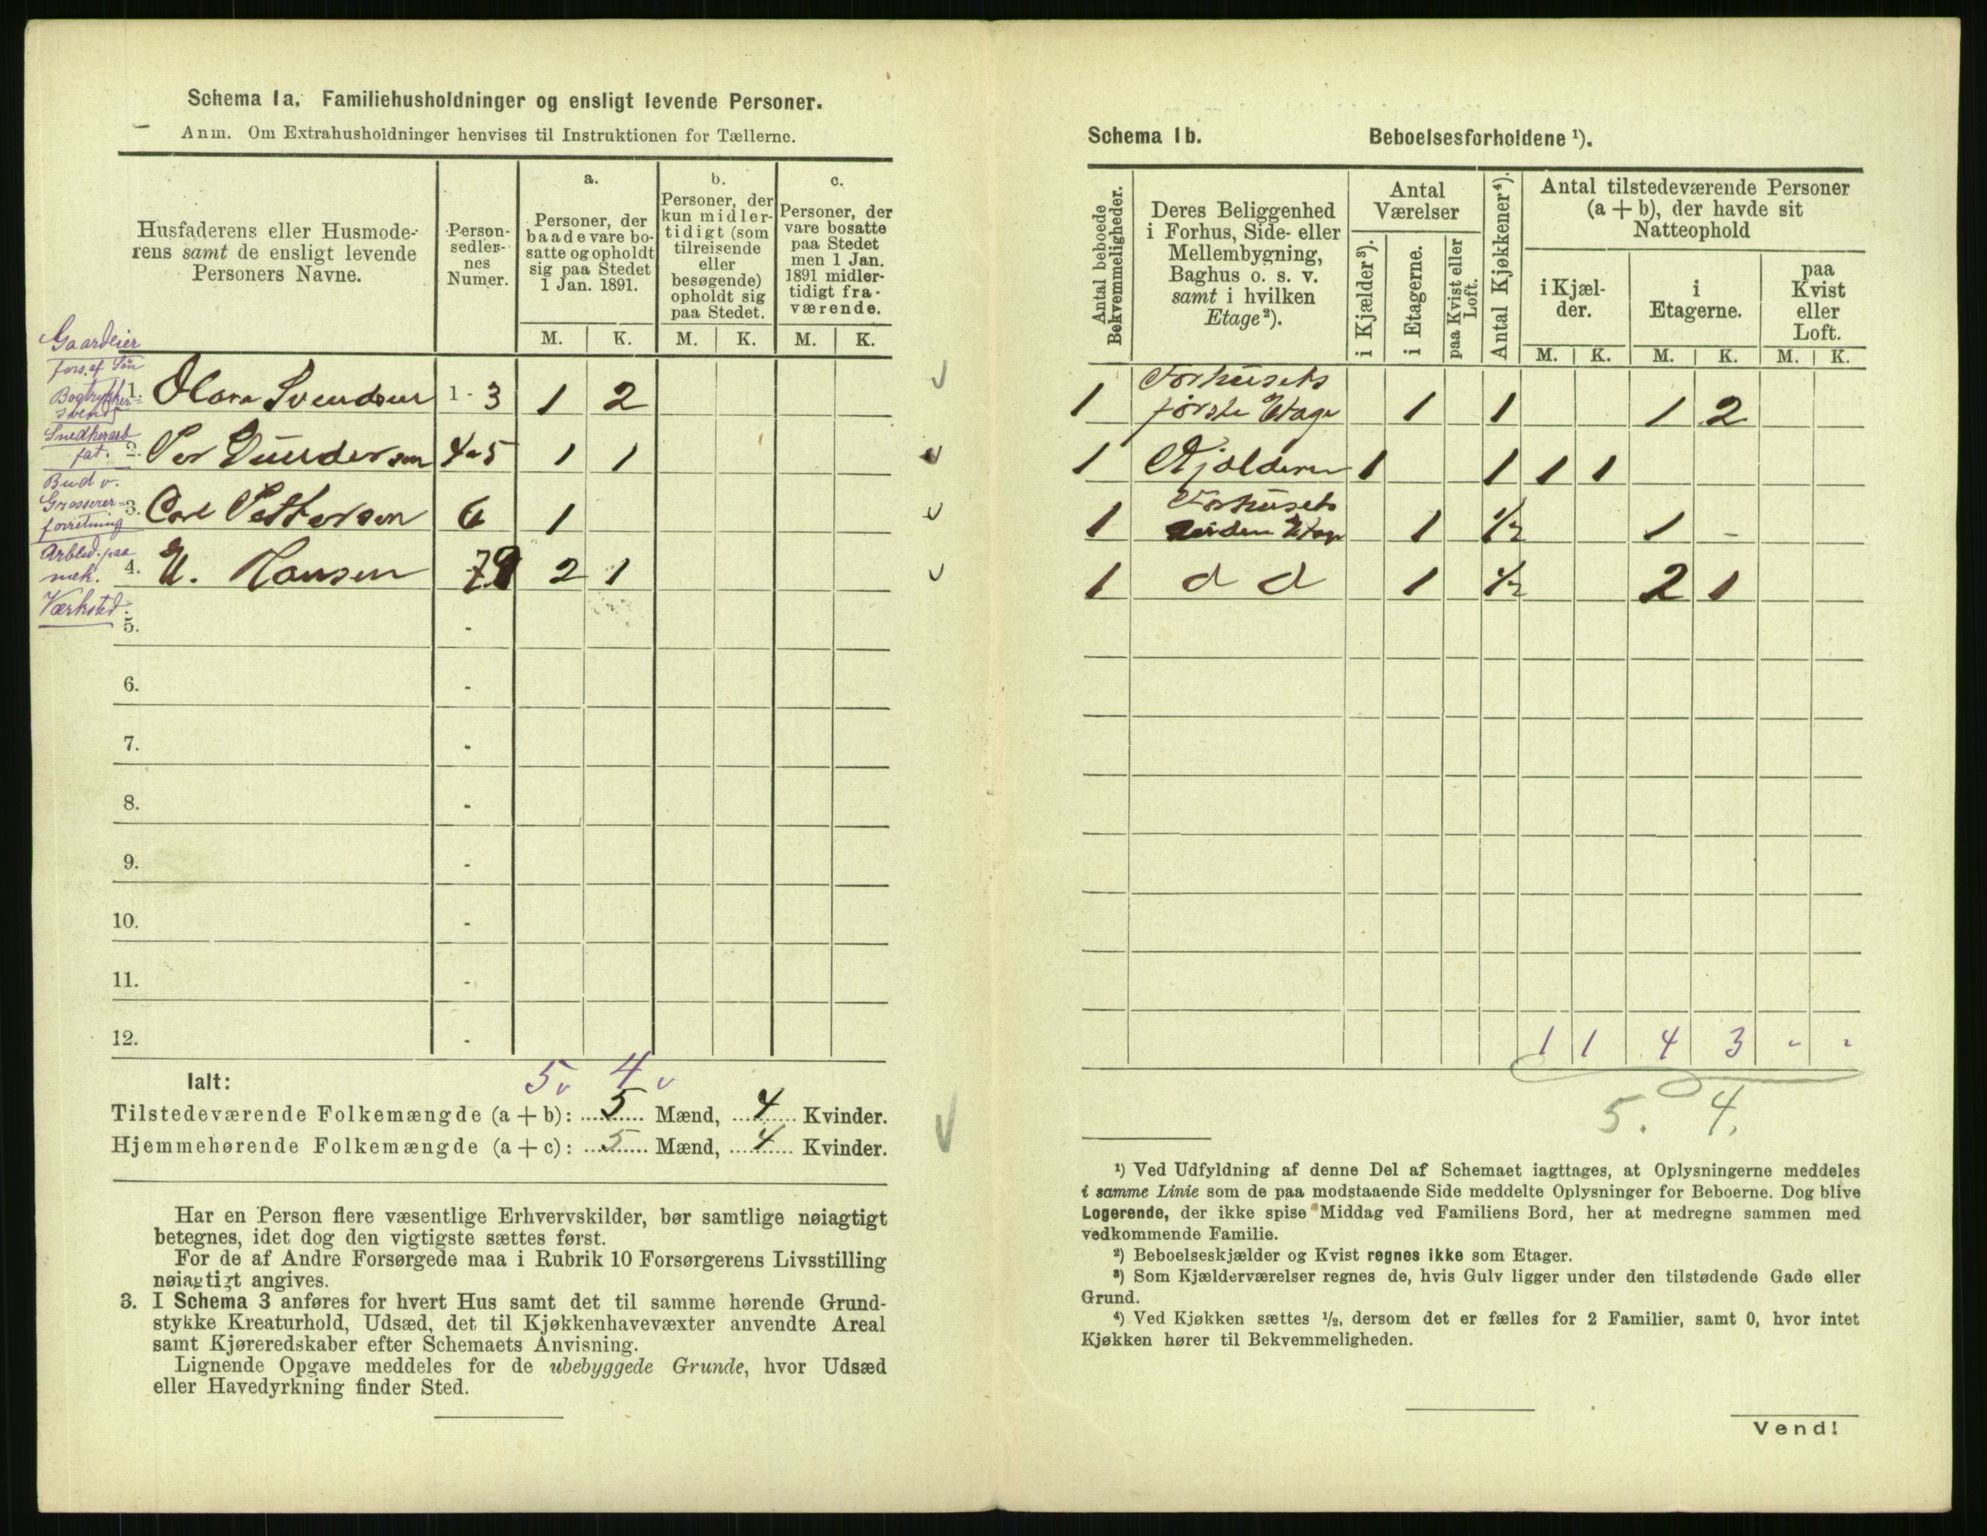 Schema 1a. Familiehusholdninger og ensligt levende Personer.
Anm. Om Extrahusholdninger henvises til Instruktionen for Tællerne.
Husfaderens eller Husmode-
rens samt de ensligt levende
Personers Navne.
Person-
sedler-
nes
Numer.
a.
Personer, der
baade vare bo-
satte og opholdt
sig paa Stedet
1 Jan. 1891.
b.
Personer, der
kun midler-
tidigt (som
tilreisende
eller
besøgende)
opholdt sig
paa Stedet.
c.
Personer, der
vare bosatte
paa Stedet
men 1 Jan.
1891 midler-
tidigt fra-
værende.
M. K. M. K. M. K.
Gaardeier
fors. af Søn
Bogtrykker=
svend
1. Olava Svendsen 1 - 3 1 2
Snedkerarb
fat.
2. Per Gundersen 4-5 1 1
Bud v.
Grosserer=
forretning
3. Carl Pettersen 6 1
Arbeid. paa
mek.
Værksted.
4. H. Hansen 79 2 1
5. -
6. -
7. -
8. -
9. -
10. -
11. -
12. -
5 v 4 v
Ialt:
Tilstedeværende Folkemængde (a + b): 5 Mænd, 4 Kvinder.
Hjemmehørende Folkemængde (a + c): 5 Mænd, 4 Kvinder.
Har en Person flere væsentlige Erhvervskilder, bør samtlige nøiagtigt
betegnes, idet dog den vigtigste sættes først.
For de af Andre Forsørgede maa i Rubrik 10 Forsørgerens Livsstilling
nøiagtigt angives.
3. I Schema 3 anføres for hvert Hus samt det til samme hørende Grund-
stykke Kreaturhold, Udsæd, det til Kjøkkenhavevæxter anvendte Areal
samt Kjøreredskaber efter Schemaets Anvisning.
Lignende Opgave meddeles for de ubebyggede Grunde, hvor Udsæd
eller Havedyrkning finder Sted.
Schema 1b. Beboelsesforholdene ¹).
Antal beboede
Bekvemmeligheder.
Deres Beliggenhed
i Forhus, Side- eller
Mellembygning,
Baghus o. s. v.
samt i hvilken
Etage²).
Antal
Værelser
i Kjælder³).
i Etagerne.
paa Kvist eller
Loft.
Antal Kjøkkener⁴).
Antal tilstedeværende Personer
(a + b), der havde sit
Natteophold
i Kjæl-
der.
i
Etagerne.
paa
Kvist
eller
Loft.
M. K. M. K. M. K.
1 Forhusets
første Etage 1 1 1 2
1 Kjælderen 1 1 1 1
1 Forhusets
anden Etage 1 1/2 1 -
1 d d 1 1/2 2 1
1 1 4 3 - -
5. 4.
¹) Ved Udfyldning af denne Del af Schemaet iagttages, at Oplysningerne meddeles
i samme Linie som de paa modstaaende Side meddelte Oplysninger for Beboerne. Dog blive
Logerende, der ikke spise Middag ved Familiens Bord, her at medregne sammen med
vedkommende Familie.
²) Beboelseskjælder og Kvist regnes ikke som Etager.
³) Som Kjælderværelser regnes de, hvis Gulv ligger under den tilstødende Gade eller
Grund.
⁴) Ved Kjøkken sættes ½, dersom det er fælles for 2 Familier, samt 0, hvor intet
Kjøkken hører til Bekvemmeligheden.
Vend!